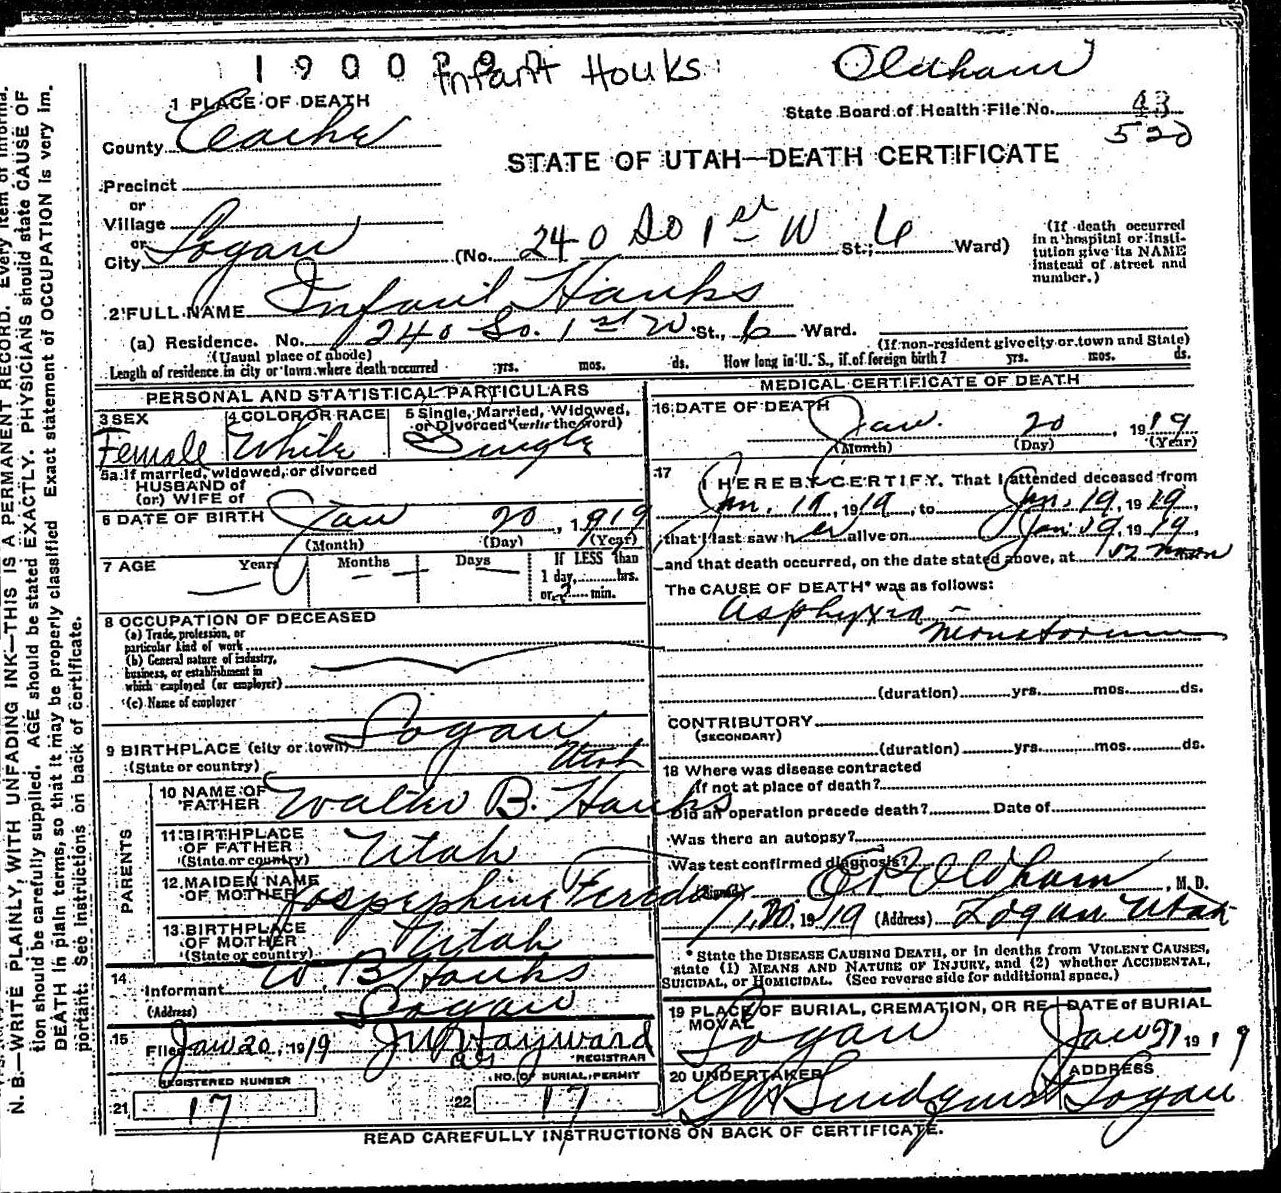 1 9 0 0
Infant Houks
Oldham
1 PLACE OF DEATH
State Board of Health File No. 43
520
County Cache
STATE OF UTAH—DEATH CERTIFICATE
Precinct
or
Village
or
City Logan (No. 240 So 1st W St; 6 Ward)
(If death occurred in a hospital or institution give its NAME instead of street and number.)
2 FULL NAME Infant Hanks
(a) Residence. No. 240 So. 1st W St., 6 Ward.
(Usual place of abode)
(If non-resident give city or town and State)
Length of residence in city or town where death occurred yrs. mos. ds. How long in U. S., if of foreign birth? yrs. mos. ds.
PERSONAL AND STATISTICAL PARTICULARS
3 SEX
Female
4 COLOR OR RACE
White
5 Single, Married, Widowed, or Divorced (write the word)
Single
5a If married, widowed, or divorced
HUSBAND of
(or) WIFE of
6 DATE OF BIRTH Jan 20, 1919
(Month) (Day) (Year)
7 AGE Years Months Days
If LESS than
1 day, hrs.
or 2 min.
8 OCCUPATION OF DECEASED
(a) Trade, profession, or
particular kind of work
(b) General nature of industry,
business, or establishment in
which employed (or employer)
(c) Name of employer
9 BIRTHPLACE (city or town) Logan
(State or country) Utah
PARENTS
10 NAME OF FATHER Walter B. Hanks
11 BIRTHPLACE OF FATHER
(State or country) Utah
12 MAIDEN NAME OF MOTHER Josephine
13 BIRTHPLACE OF MOTHER
(State or country) Utah
14
Informant W B Hanks
(Address) Logan
15
Filed Jan 20, 1919 Hayward
REGISTRAR
REGISTERED NUMBER
21 17
NO. OF BURIAL PERMIT
22 17
MEDICAL CERTIFICATE OF DEATH
16 DATE OF DEATH
Jan. 20, 1919
(Month) (Day) (Year)
17
I HEREBY CERTIFY, That I attended deceased from
Jan. 19, 1919, to Jan. 19, 1919,
that I last saw her alive on Jan. 19, 1919,
and that death occurred, on the date stated above, at 12 noon
The CAUSE OF DEATH* was as follows:
Asphyxia
neonatorum
(duration) yrs. mos. ds.
CONTRIBUTORY
(SECONDARY)
(duration) yrs. mos. ds.
18 Where was disease contracted
if not at place of death?
Did an operation precede death? Date of
Was there an autopsy?
Was test confirmed diagnosis?
(Signed) Oldham, M. D.
1.20, 1919 (Address) Logan Utah
* State the DISEASE CAUSING DEATH, or in deaths from VIOLENT CAUSES,
state (1) MEANS AND NATURE OF INJURY, and (2) whether ACCIDENTAL,
SUICIDAL, or HOMICIDAL. (See reverse side for additional space.)
19 PLACE OF BURIAL, CREMATION, OR REMOVAL
Logan
DATE of BURIAL
Jan 21 1919
20 UNDERTAKER
ADDRESS
Logan
READ CAREFULLY INSTRUCTIONS ON BACK OF CERTIFICATE.
N. B.—WRITE PLAINLY, WITH UNFADING INK—THIS IS A PERMANENT RECORD. Every item of informa-
tion should be carefully supplied. AGE should be stated EXACTLY. PHYSICIANS should state CAUSE OF
DEATH in plain terms, so that it may be properly classified. Exact statement of OCCUPATION is very im-
portant. See instructions on back of certificate.